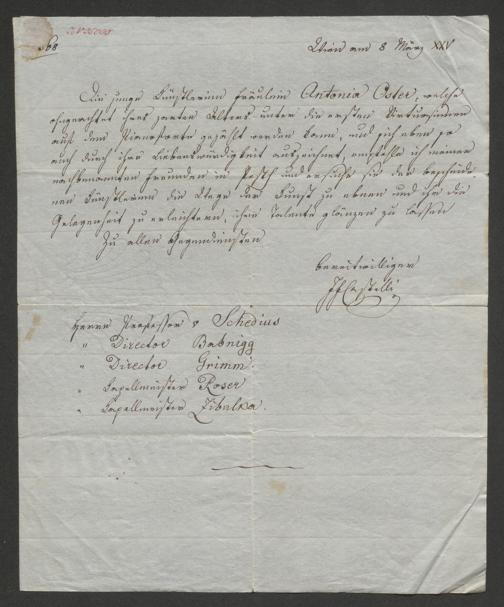 Wien am 8 März XXV
Die junge Künstlerinn Fräulein Antonia Oster, welche
ohngeachtet ihres zarten Alters unter die ersten Virtuosinnen
auf dem Pianoforte gezählt werden kann, und sich eben so
auch durch ihre Liebenswürdigkeit auszeichnet, empfehle ich meinen
nachbenannten Freunden in Pesth und ersuche sie der bescheide
nen Künstlerinn die Wege der Kunst zu ebnen und ihr die
Gelegenheit zu erleichtern, ihre Talente glänzen zu lassen
Zu allen Gegendiensten
bereitwilliger
Castelli
Herrn Professor v Schedius
" Director Babnigg
" Director Grimm.
" Capellmeister Roser
" Capellmeister Zibulka.